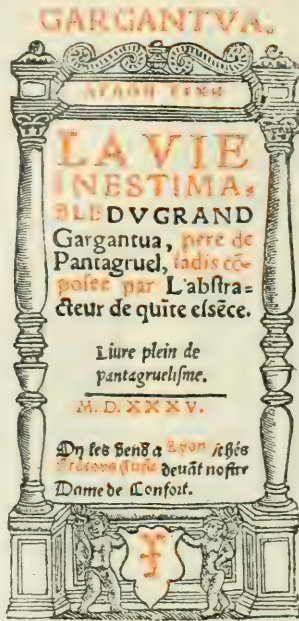 GARGANTVA.
ΑΓΑΘΗ ΤΥΧΗ
LA VIE
INESTIMA-
BLE DVGRAND
Gargantua, pere de
Pantagruel, iadis cõ-
posee par L'abſtra=
cteur de quĩte eſsẽce.
Liure plein de
pantagrueliſme.
M. D. XXXV.
On les Bend a Lyon /chés
Frãcoys Juſte deuãt noſtre
Dame de Confort.